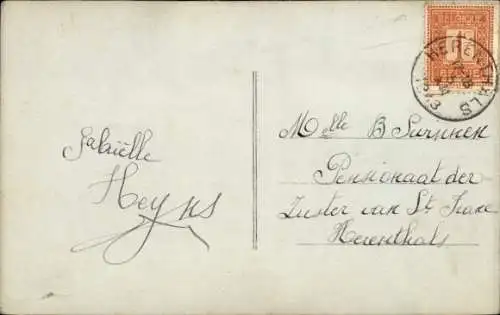 BELGIQUE
1
HERENTHALS
1913
Gabriëlle
Heyns
Melle B Surinen
Pensionaat der
Zuster van St. Franc
Herenthals